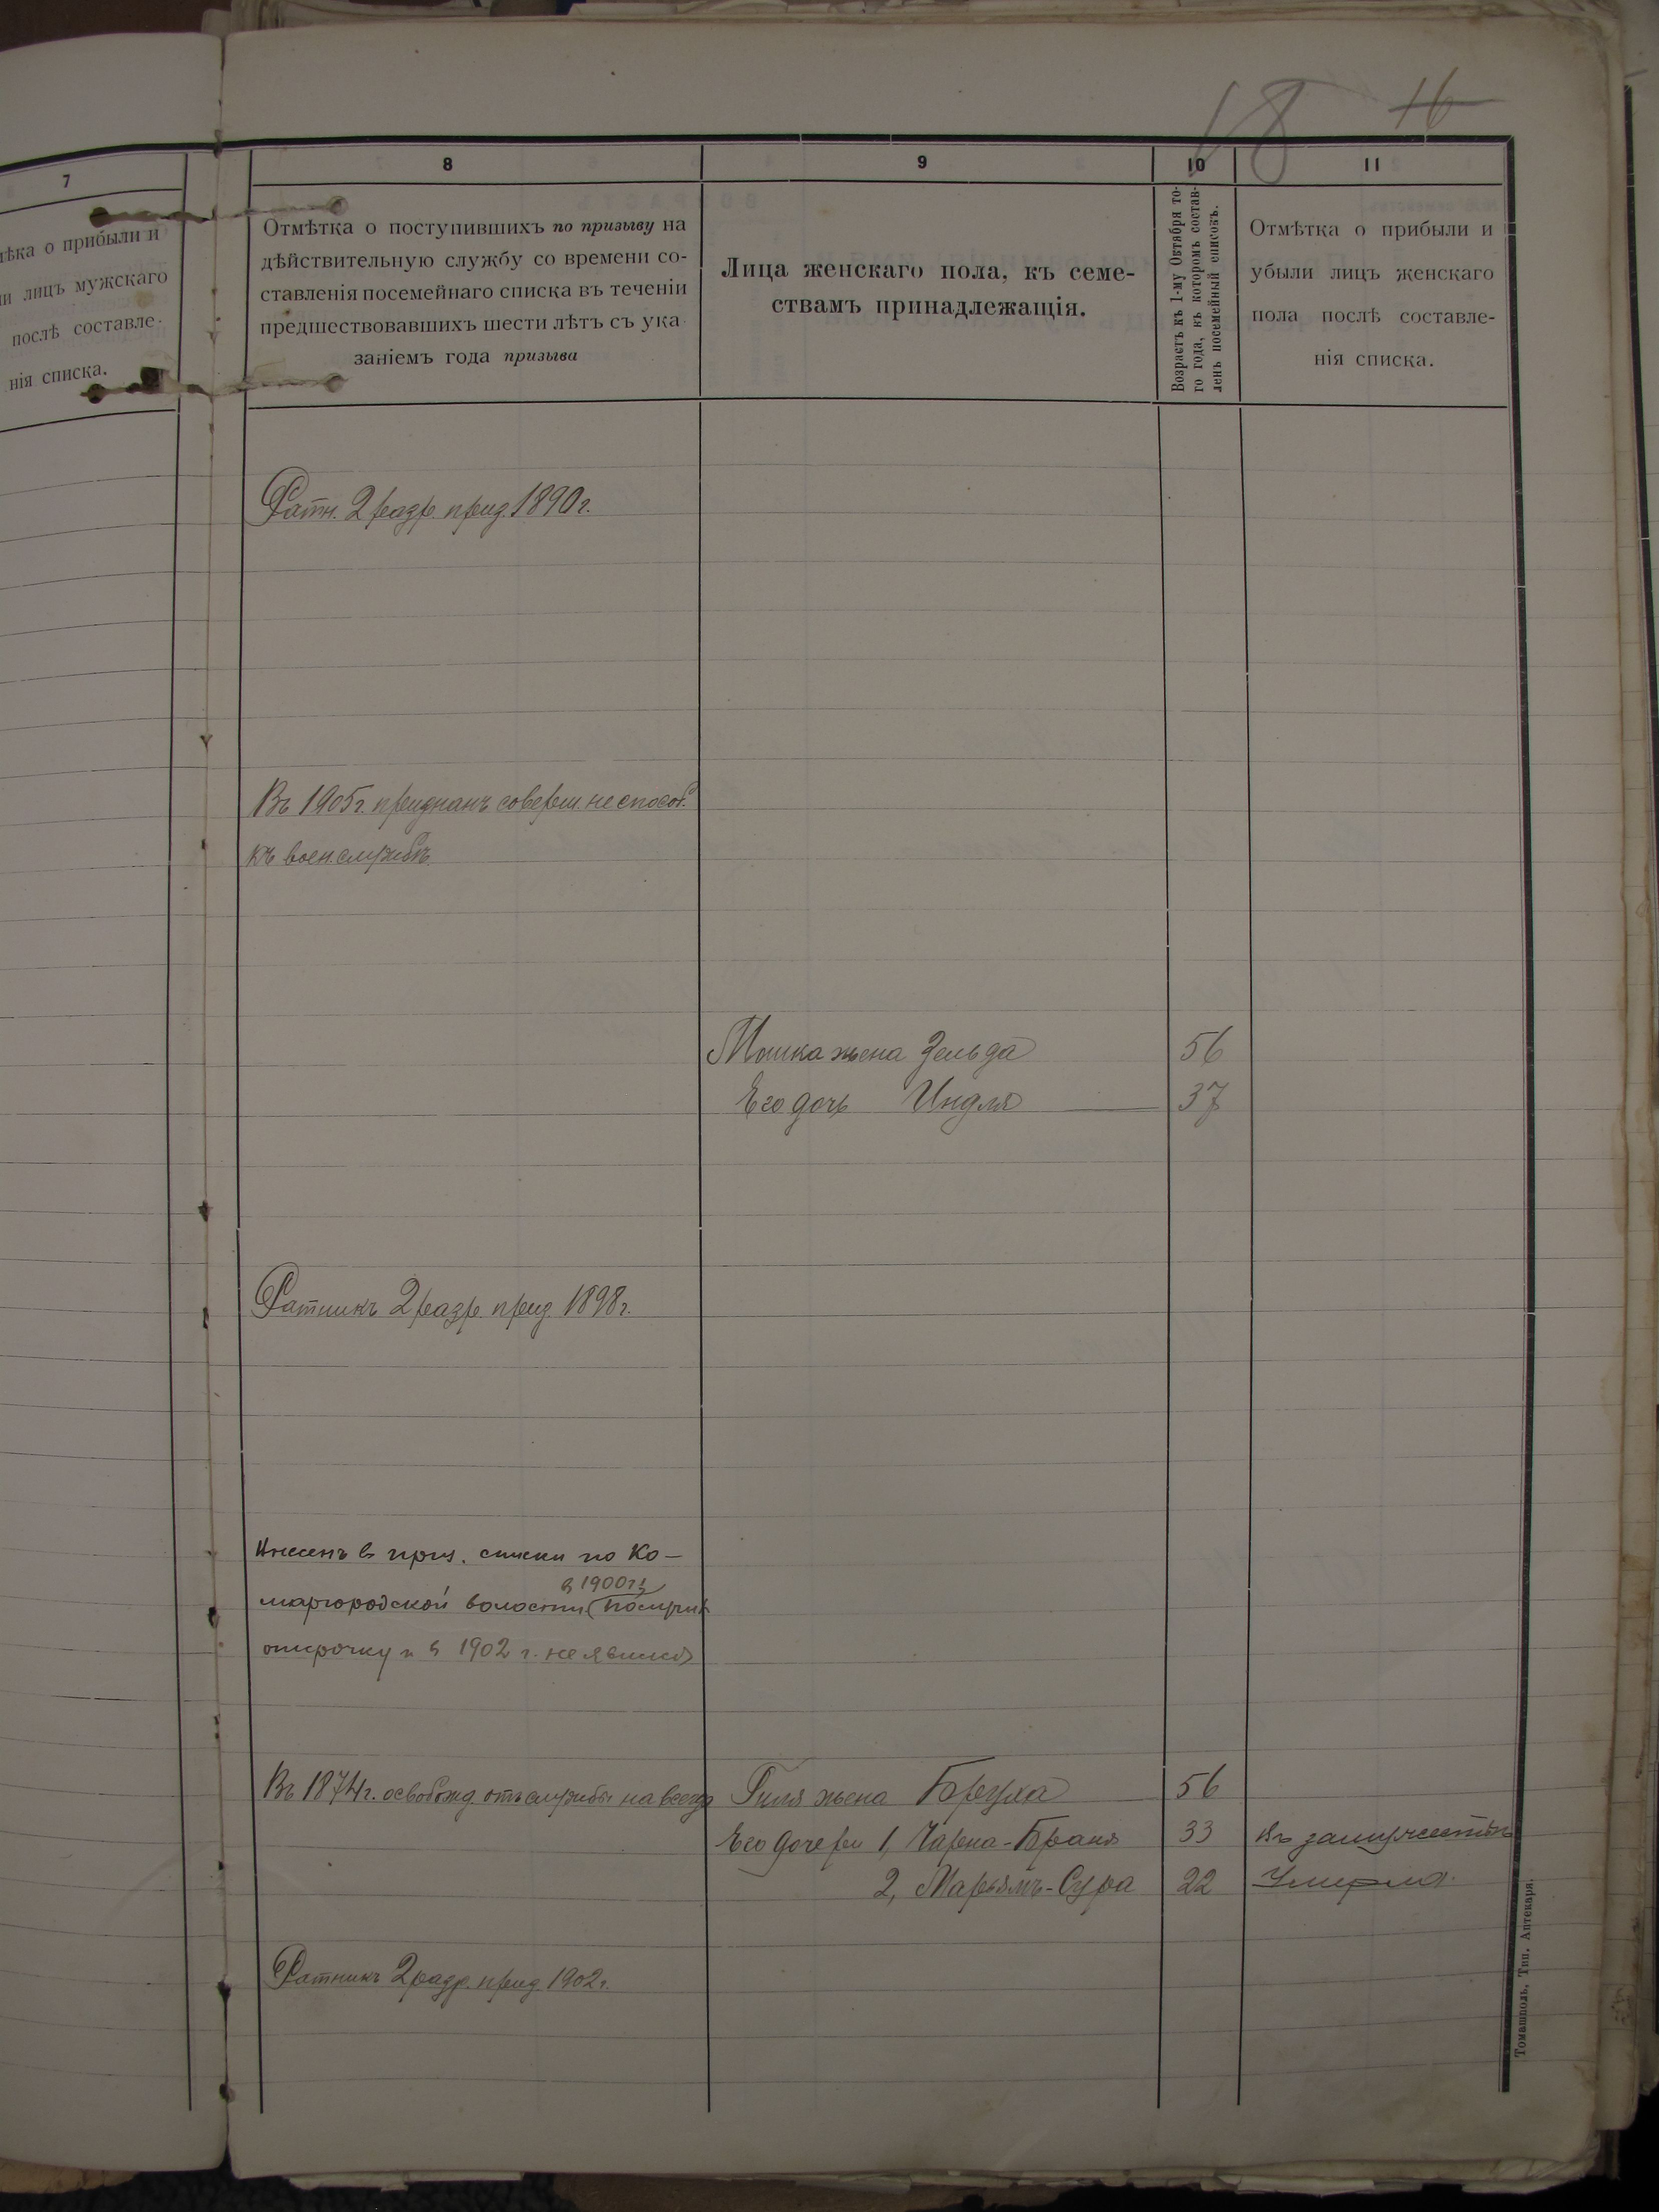 18 16
7
8
9
10
11
ѣка о прибыли и
и лицъ мужскаго
послѣ составле-
нія списка.
Отмѣтка о поступившихъ по призыву на
дѣйствительную службу со времени со-
ставленія посемейнаго списка въ теченіи
предшествовавшихъ шести лѣтъ съ ука
заніемъ года призыва
Лица женскаго пола, къ семе-
ствамъ принадлежащія.
Возрастъ къ 1-му Октября то-
го года, къ которомъ состав-
ленъ посемейный списокъ.
Отмѣтка о прибыли и
убыли лицъ женскаго
пола послѣ составле-
нія списка.
Ратн. 2 разр. приз. 1890 г.
Въ 1905 г. признанъ соверш. неспособ.
къ воен. службѣ
Мошка жена Зельда 56
Его дочь Индля 37
Ратникъ 2 разр. приз. 1898 г.
Внесенъ в приз. списки по Ко-
в 1900 г.
маргородской волости
отсрочку и в 1902 г. не явился
Въ 1874 г. освобожд. отъ службы на всегда
Гиля жена 56
Его дочери 1, Чарна-Браня 33 Въ замужествѣ
2, Марьямъ-Сура 22 Умерла.
Ратникъ 2 разр. приз. 1902 г.
Томашполь, Тип. Аптекаря.